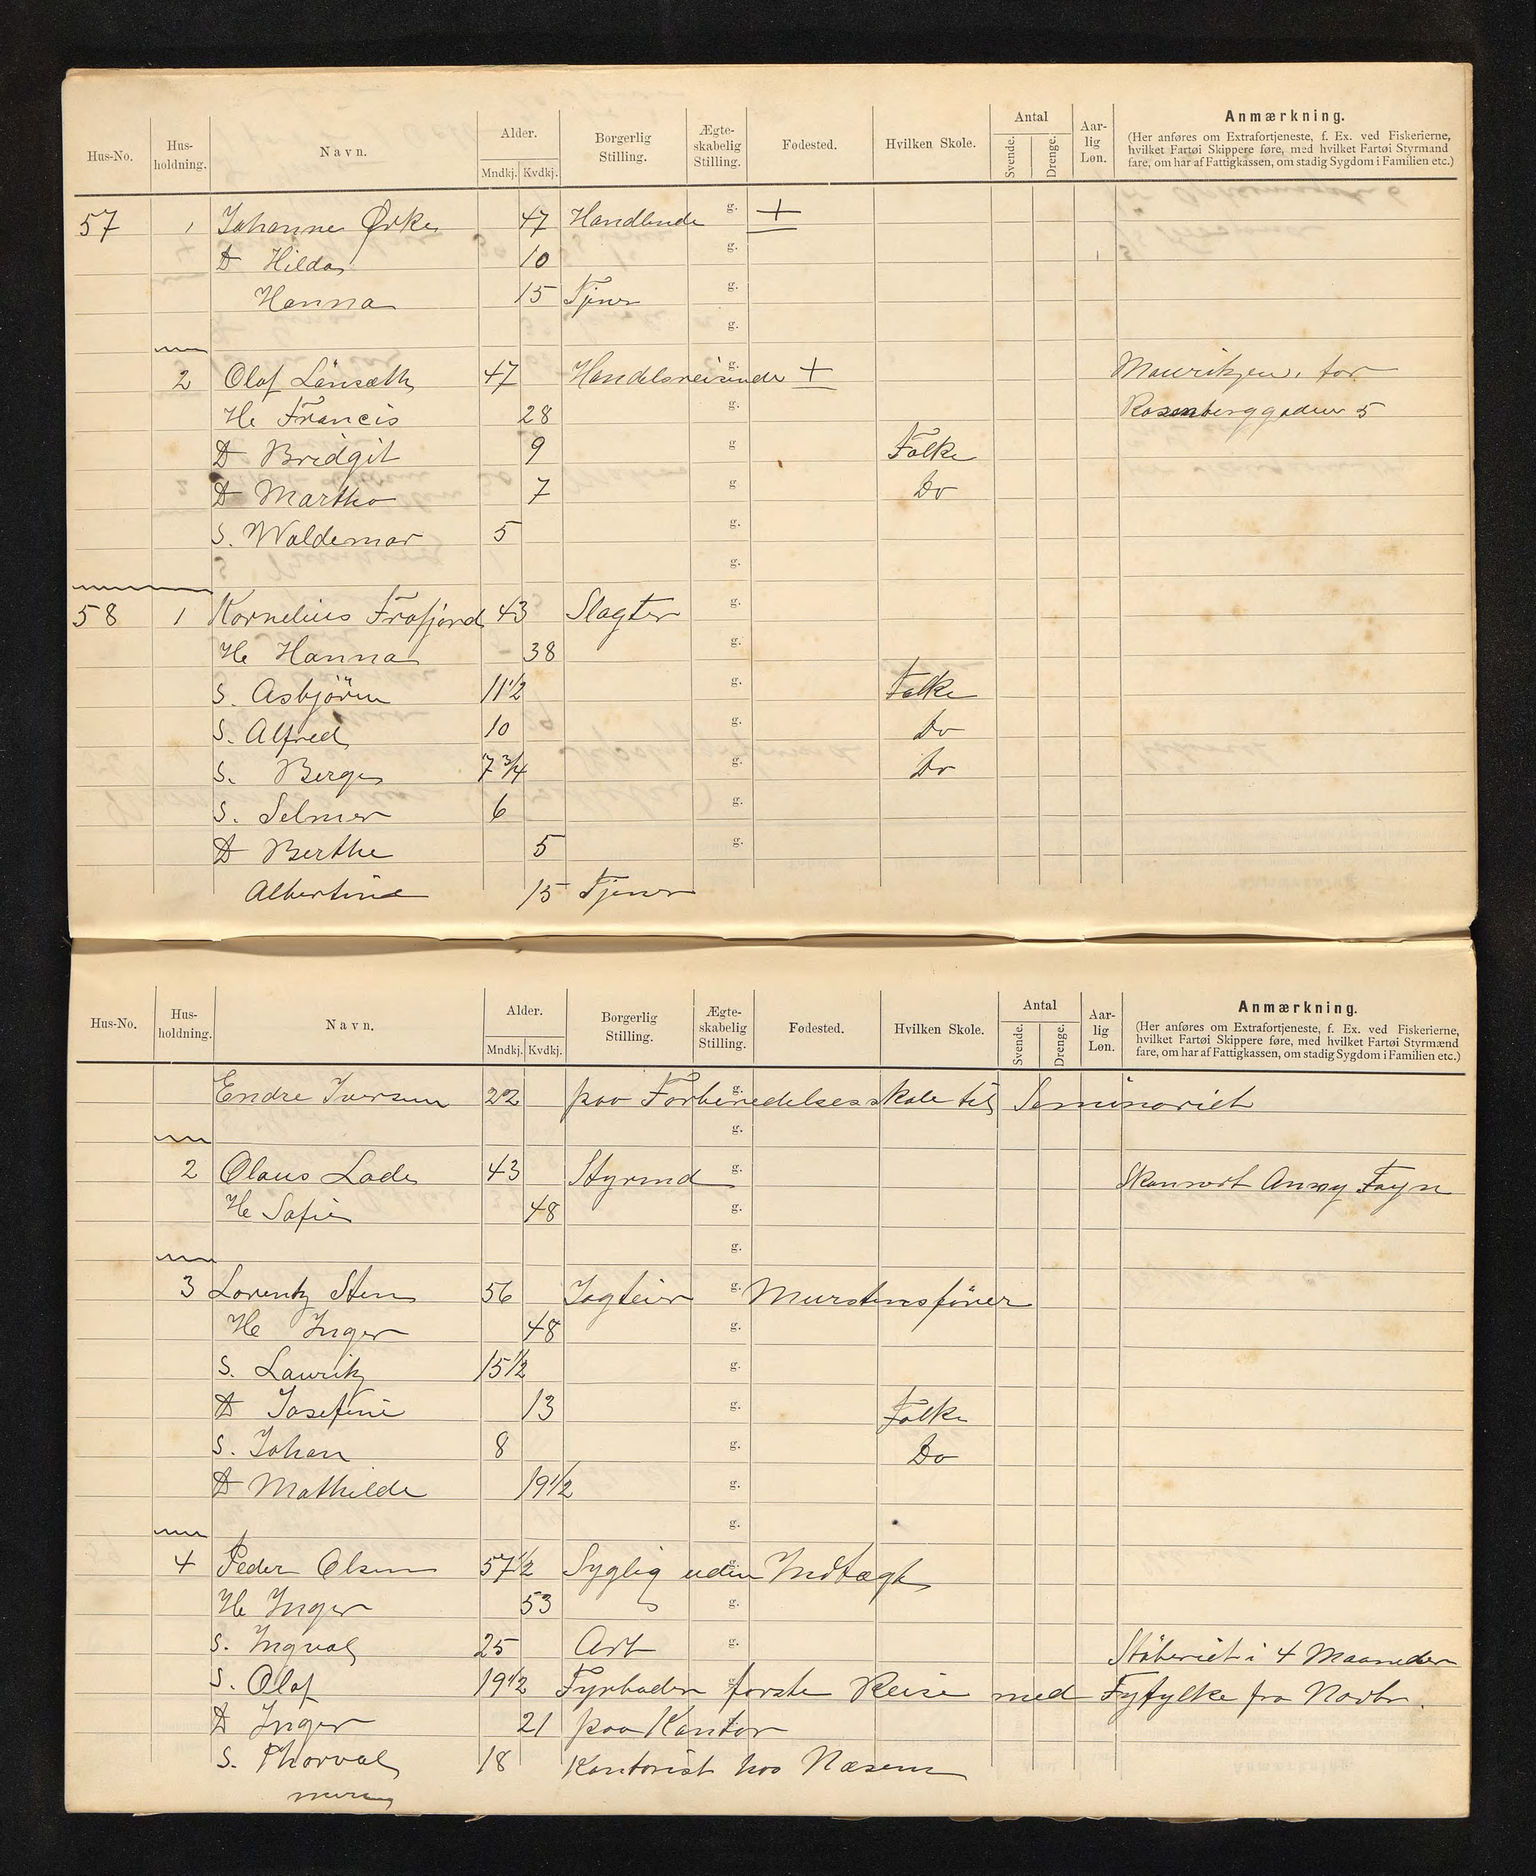 Hus-No. Hus-holdning. Navn. Alder. Mndkj. Kvdkj. Borgerlig Stilling. Ægte-skabelig Stilling. Fødested. Hvilken Skole. Antal Svende. Drenge. Aar-lig Løn. Anmærkning.
(Her anføres om Extrafortjeneste, f. Ex. ved Fiskerierne, hvilket Fartøi Skippere føre, med hvilket Fartøi Styrmænd fare, om har af Fattigkassen, om stadig Sygdom i Familien etc.)
57 1 Johanne Ørke 47 Handlende g. +
D Hilda 10 g.
Hanna 15 Tjener g.
g.
2 Olaf Lönsæth 47 Handelsreisende g. +
He Francis 28 g. Rosenberggaden 5
D Bridgit 9 g Folke
D Martha 7 g Do
S. Waldemar 5 g.
g.
58 1 Kornelius Frafjord 43 Slagter g.
He Hanna 38 g.
S. Asbjörn 11 1/2 g. Folke
S. Alfred 10 g. Do
S. Berge 7 3/4 g. Do
S. Selmer 6 g.
D Berthe 5 g.
Albertine 15 Tjener
Hus-No. Hus-holdning. Navn. Alder. Mndkj. Kvdkj. Borgerlig Stilling. Ægte-skabelig Stilling. Fødested. Hvilken Skole. Antal Svende. Drenge. Aar-lig Løn. Anmærkning.
(Her anføres om Extrafortjeneste, f. Ex. ved Fiskerierne, hvilket Fartøi Skippere føre, med hvilket Fartøi Styrmænd fare, om har af Fattigkassen, om stadig Sygdom i Familien etc.)
Endre Iversen 22 paa Forberedelsesskole til Seminariet g.
g.
2 Olaus Lode 43 Styrmd g.
He Sofie 48 g.
g.
3 Lorentz Sten 56 Jagteier g. Murstensförer
He Inger 48 g.
S. Lauritz 15 1/2 g.
D Josefine 13 g. Folke
S. Johan 8 g. Do
D Mathilde 19 1/2 g.
g.
4 Peder Olsen 57 1/2 Syglig uden Indtægt g.
He Inger 53 g.
S. Ingval 25 Arb g. Stöberiet i 4 Maaneder
S. Olaf 19 1/2 Fyrbøder første Reise med Fyfylke fra Novbr.
D Inger 21 paa Kontor
S. Thorval 18 Kontorist hos Næsem